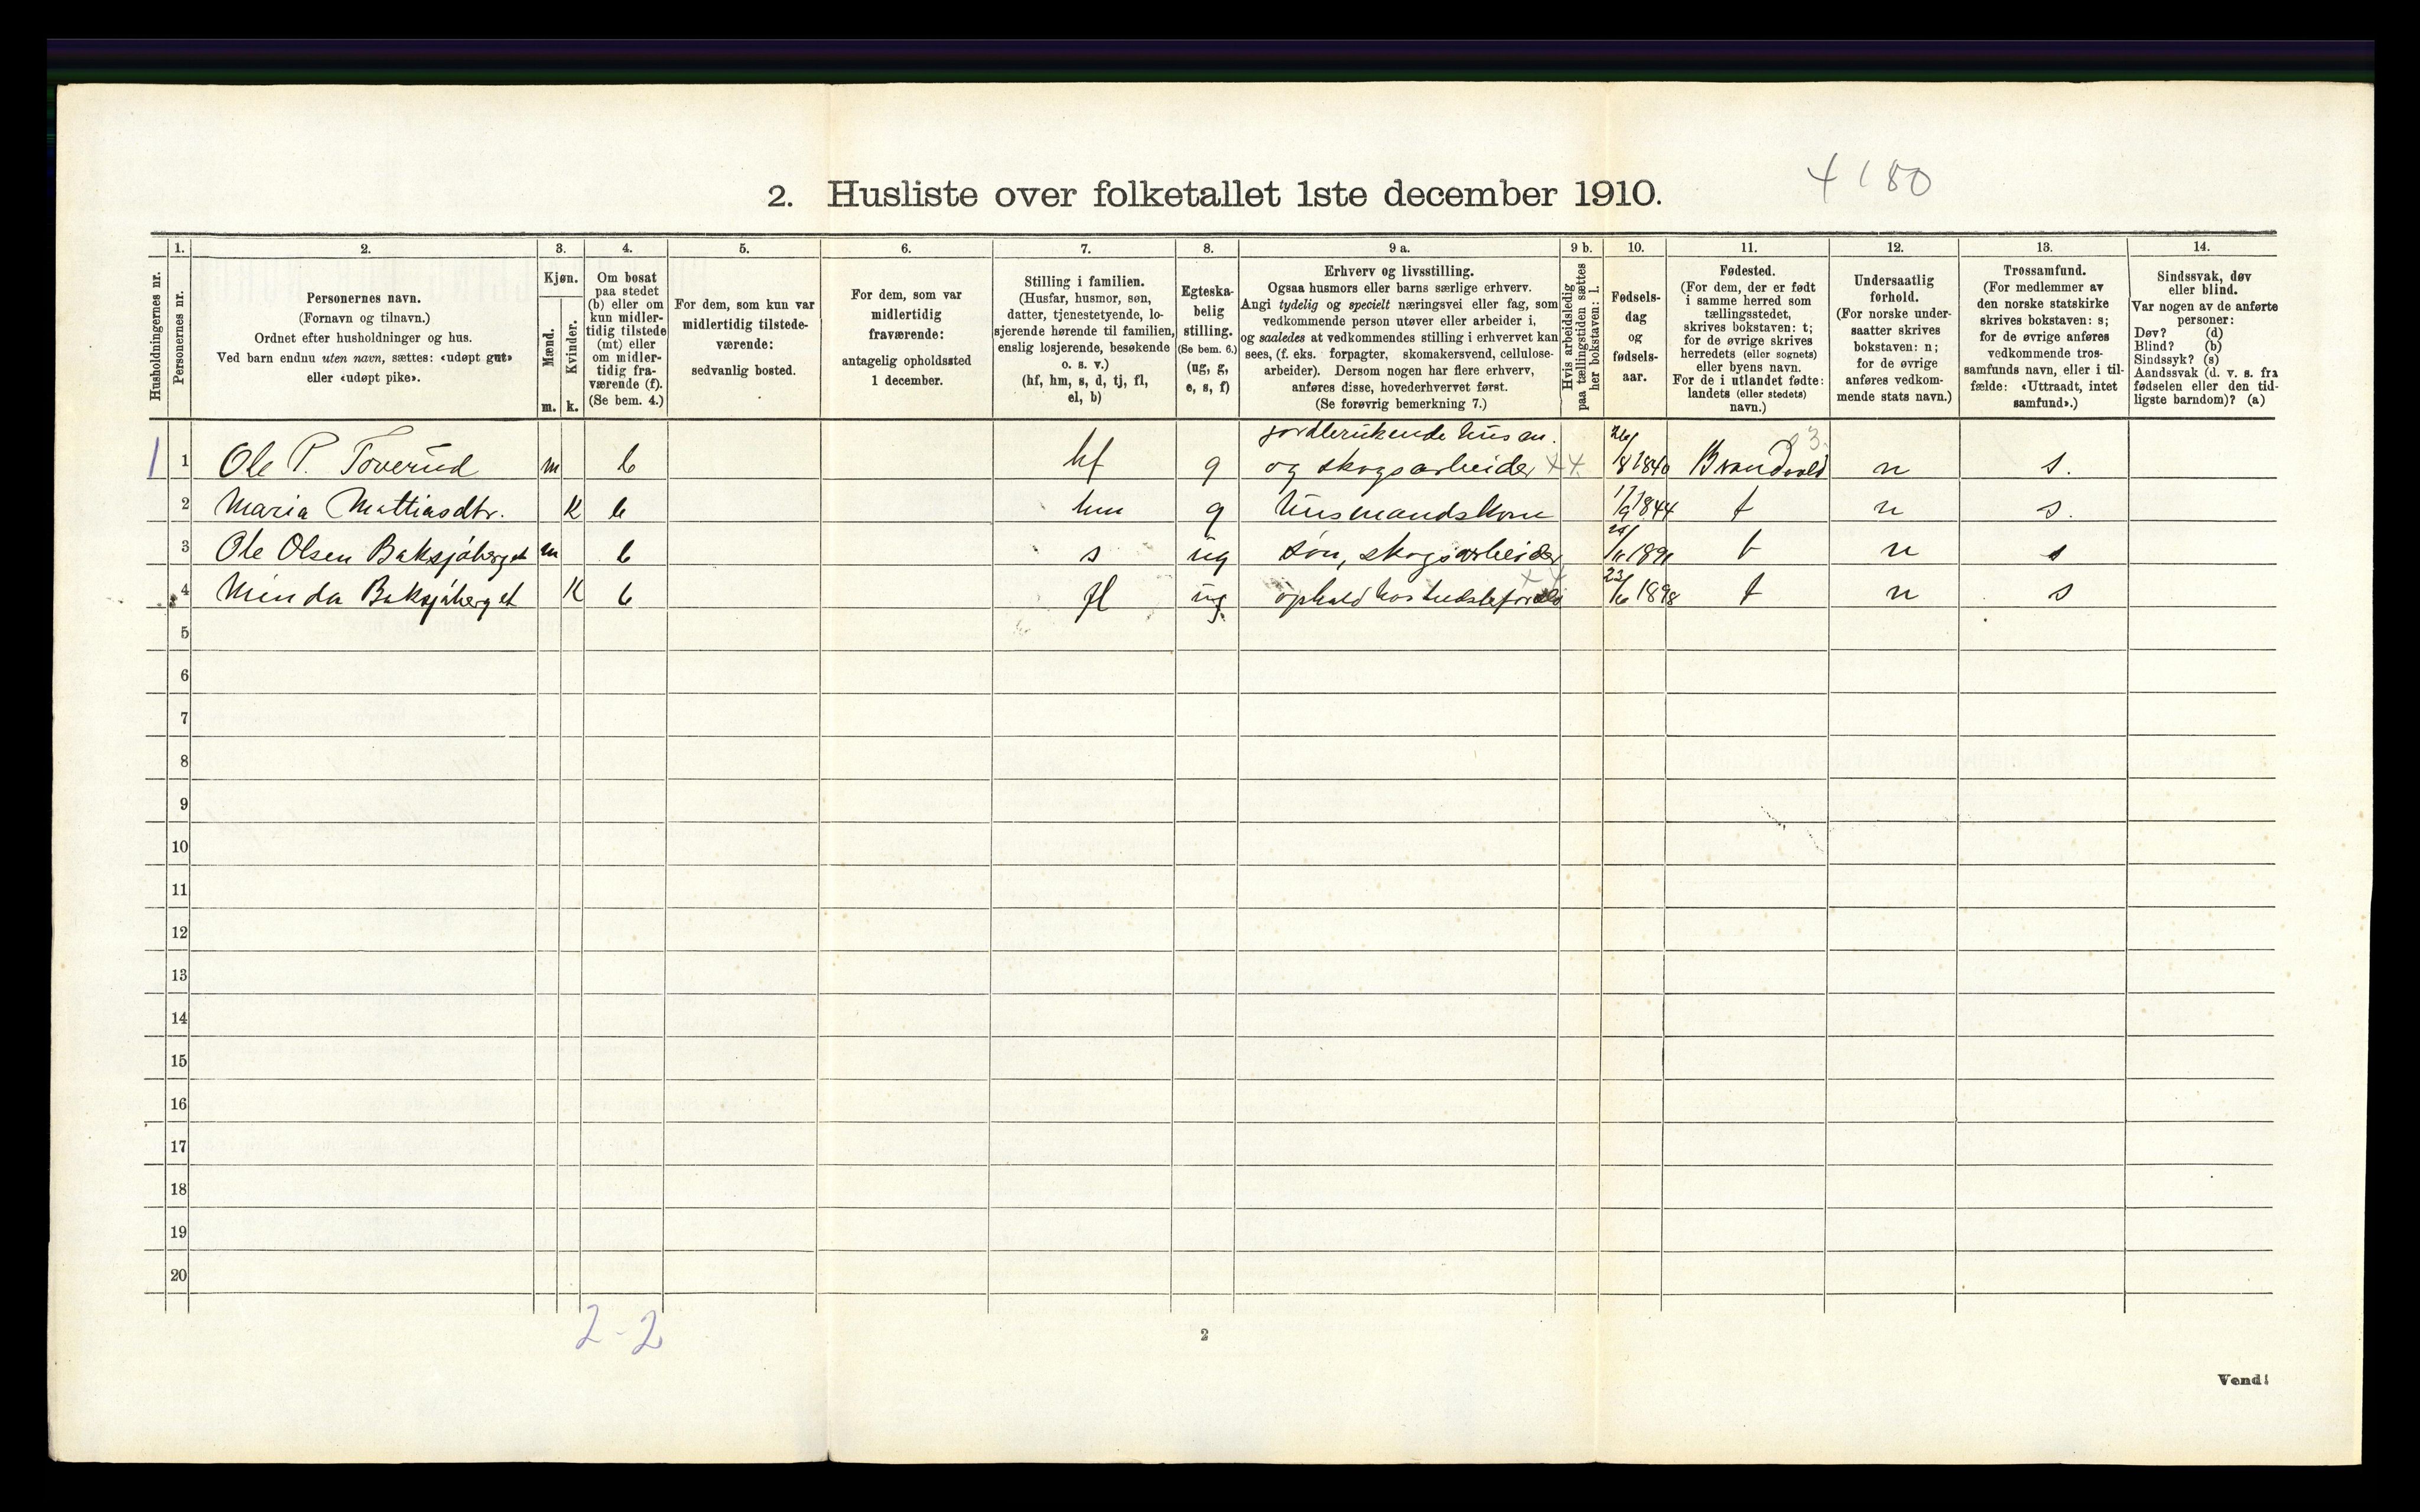 4180
2. Husliste over folketallet 1ste december 1910.
Husholdningernes nr.
1.
Personernes nr.
2.
Personernes navn.
(Fornavn og tilnavn.)
Ordnet efter husholdninger og hus.
Ved barn endnu uten navn, sættes: «udøpt gut»
eller «udøpt pike».
3.
Kjøn.
Mænd.
m.
Kvinder.
k.
4.
Om bosat
paa stedet
(b) eller om
kun midler-
tidig tilstede
(mt) eller
om midler-
tidig fra-
værende (f).
(Se bem. 4.)
5.
For dem, som kun var
midlertidig tilstede-
værende:
sedvanlig bosted.
6.
For dem, som var
midlertidig
fraværende:
antagelig opholdssted
1 december.
7.
Stilling i familien.
(Husfar, husmor, søn,
datter, tjenestetyende, lo-
sjerende hørende til familien,
enslig losjerende, besøkende
o. s. v.)
(hf, hm, s, d, tj, fl,
el, b)
8.
Egteska-
belig
stilling.
(Se bem. 6.)
(ug, g,
e, s, f)
9 a.
Erhverv og livsstilling.
Ogsaa husmors eller barns særlige erhverv.
Angi tydelig og specielt næringsvei eller fag, som
vedkommende person utøver eller arbeider i,
og saaledes at vedkommendes stilling i erhvervet kan
sees, (f. eks. forpagter, skomakersvend, cellulose-
arbeider). Dersom nogen har flere erhverv,
anføres disse, hovederhvervet først.
(Se forøvrig bemerkning 7.)
9 b.
Hvis arbeidsledig
paa tællingstiden sættes
her bokstaven: l.
10.
Fødsels-
dag
og
fødsels-
aar.
11.
Fødested.
(For dem, der er født
i samme herred som
tællingsstedet,
skrives bokstaven: t;
for de øvrige skrives
herredets (eller sognets)
eller byens navn.
For de i utlandet fødte:
landets (eller stedets)
navn.)
12.
Undersaatlig
forhold.
(For norske under-
saatter skrives
bokstaven: n;
for de øvrige
anføres vedkom-
mende stats navn.)
13.
Trossamfund.
(For medlemmer av
den norske statskirke
skrives bokstaven: s;
for de øvrige anføres
vedkommende tros-
samfunds navn, eller i til-
fælde: «Uttraadt, intet
samfund».)
14.
Sindssvak, døv
eller blind.
Var nogen av de anførte
personer:
Døv? (d)
Blind? (b)
Sindssyk? (s)
Aandssvak (d. v. s. fra
fødselen eller den tid-
ligste barndom)? (a)
jordbrukende husm.
1 1 Ole P. Toverud m b hf g og skogsarbeider 26/8 1840 Brandvold n s.
2 Maria Mattiasdtr. K b hm g husmandskone 1/9 1844 t n s.
3 Ole Olsen Baksjøberget m b s ug søn, skogsarbeider t n s
4 Minda Baksjøberget K b fl ug ophold hos 23/6 1898 t n s
5
6
7
8
9
10
11
12
13
14
15
16
17
18
19
20
2-2
2
Vend!